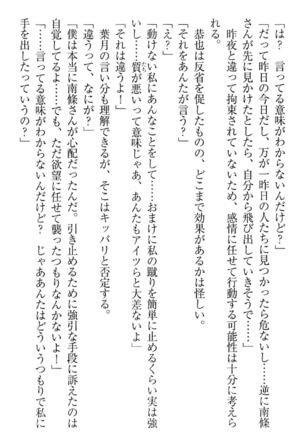 「は？　言ってる意味がわからないんだけど？」
「だって昨日の今日だし、万が一昨日の人たちに見つかったら危ないし……逆に南條
さんが先に見かけたとしたら、自分から飛び出していきそうで……」
昨夜と違って拘束されていないため、感情に任せて行動する可能性は十分に考えら
れる。
恭也は反省を促したものの、どこまで効果があるかは怪しい。
「それをあんたが言う？」
「え？」
「動けない私にあんなことをして……おまけに私の蹴りを簡単に止めるくらい実は強
いし……質が悪いって意味じゃあ、あんたもアイツらと大差ないでしょ」
「それは違うよ！」
葉月の言い分も理解できるが、そこはキッパリと否定する。
「違うって、なにが？」
「僕は本当に南條さんが心配だったんだ。引き止めるために強引な手段に訴えたのは
自覚してるよ……でも、ただ欲望に任せて襲ったつもりなんかないよ！」
「……言ってる意味がわからないんだけど？　じゃああんたはどういうつもりで私に
手を出したっていうの？」